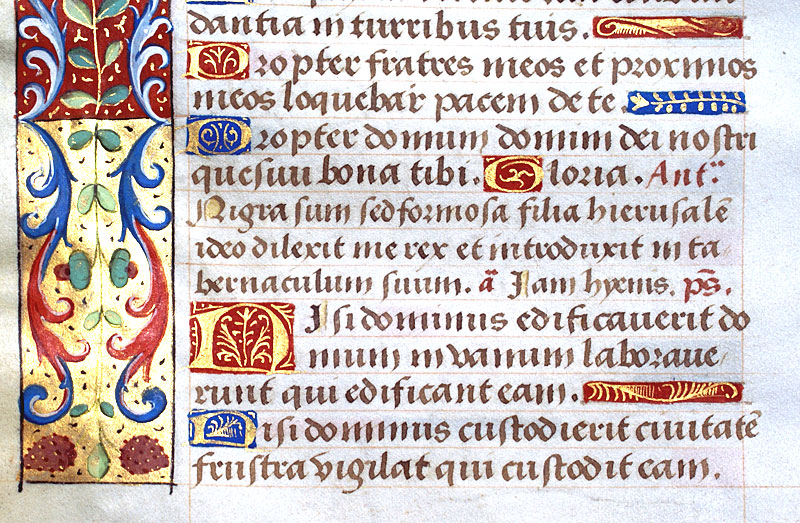 dantia in turribus tuis.
Propter fratres meos et proximos
meos loquebar pacem de te
Propter domum domini dei nostri
quesiui bona tibi. Gloria. Ant.
Nigra sum sed formosa filia hierusalē
ideo dilexit me rex et introduxit in ta
bernaculum suum. a Iam hyems. ps.
Nisi dominus edificauerit do
mum in vanum laboraue
runt qui edificant eam.
Nisi dominus custodierit ciuitatē
frustra vigilat qui custodit eam.